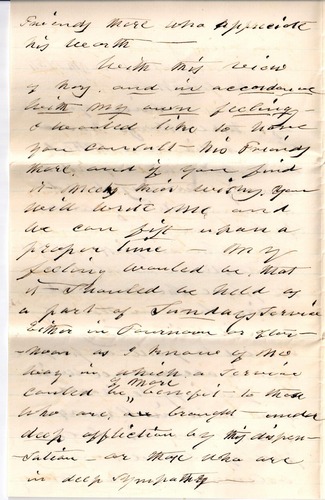 Friends there who appreciate
his worth —
With this view
of hers, and in accordance
with my own feeling —
I would like to have
you consult his Friends
there, and if you find
it meets their wishes, you
will write me and
we can fix upon a
proper time — My
feeling would be, that
it should be held as
a part of Sunday Service
Either in Fournoon or after-
noon as I know of no
way in which a service
could be of more benefit to those
who are, brought under
deep affliction by this dispen-
sation — or those who are
in deep sympathy